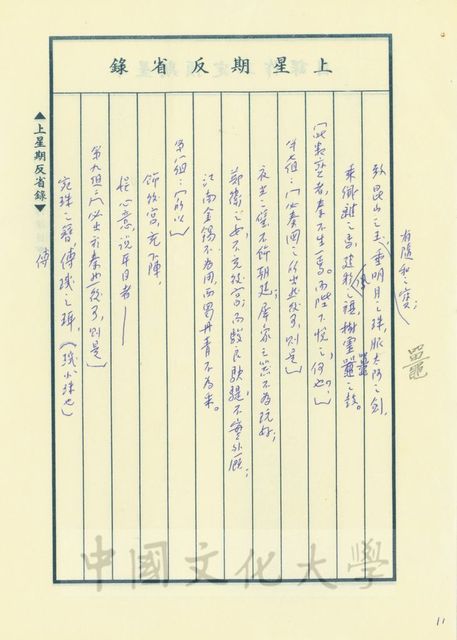 上星期反省錄
有隨和之寶;
致昆山之玉,垂明月之珠,服太阿之劍,
乘纖離之馬,建翠鳳之旗,樹靈鼉之鼓。
鼉
[此數寶者,秦不生一焉,而陛下悅之,何也?]
第七組:[必秦國之所生然後可,則是]
夜光之璧不飾朝廷;犀象之器不為玩好;
鄭衛之女不充後宮;而駿良駃騠不實外廄;
江南金錫不為用,西蜀丹青不為采。
第八組:[所以]
飾後宮,充下陳,
娛心意,說耳目者——
第九組:[必出於秦然後可,則是]
宛珠之簪,傅璣之珥,(璣小珠也)
傅
▲上星期反省錄▼
中國文化大學
11